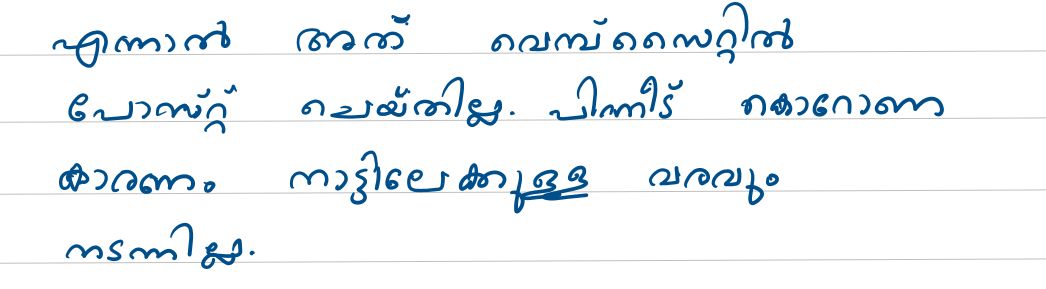 എന്നാൽ അത് വെമ്പ്സൈറ്റിൽ
പോസ്റ്റ് ചെയ്തില്ല. പിന്നീട് കൊറോണ
കാരണം നാട്ടിലേക്കുള്ള വരവും
നടന്നില്ല.